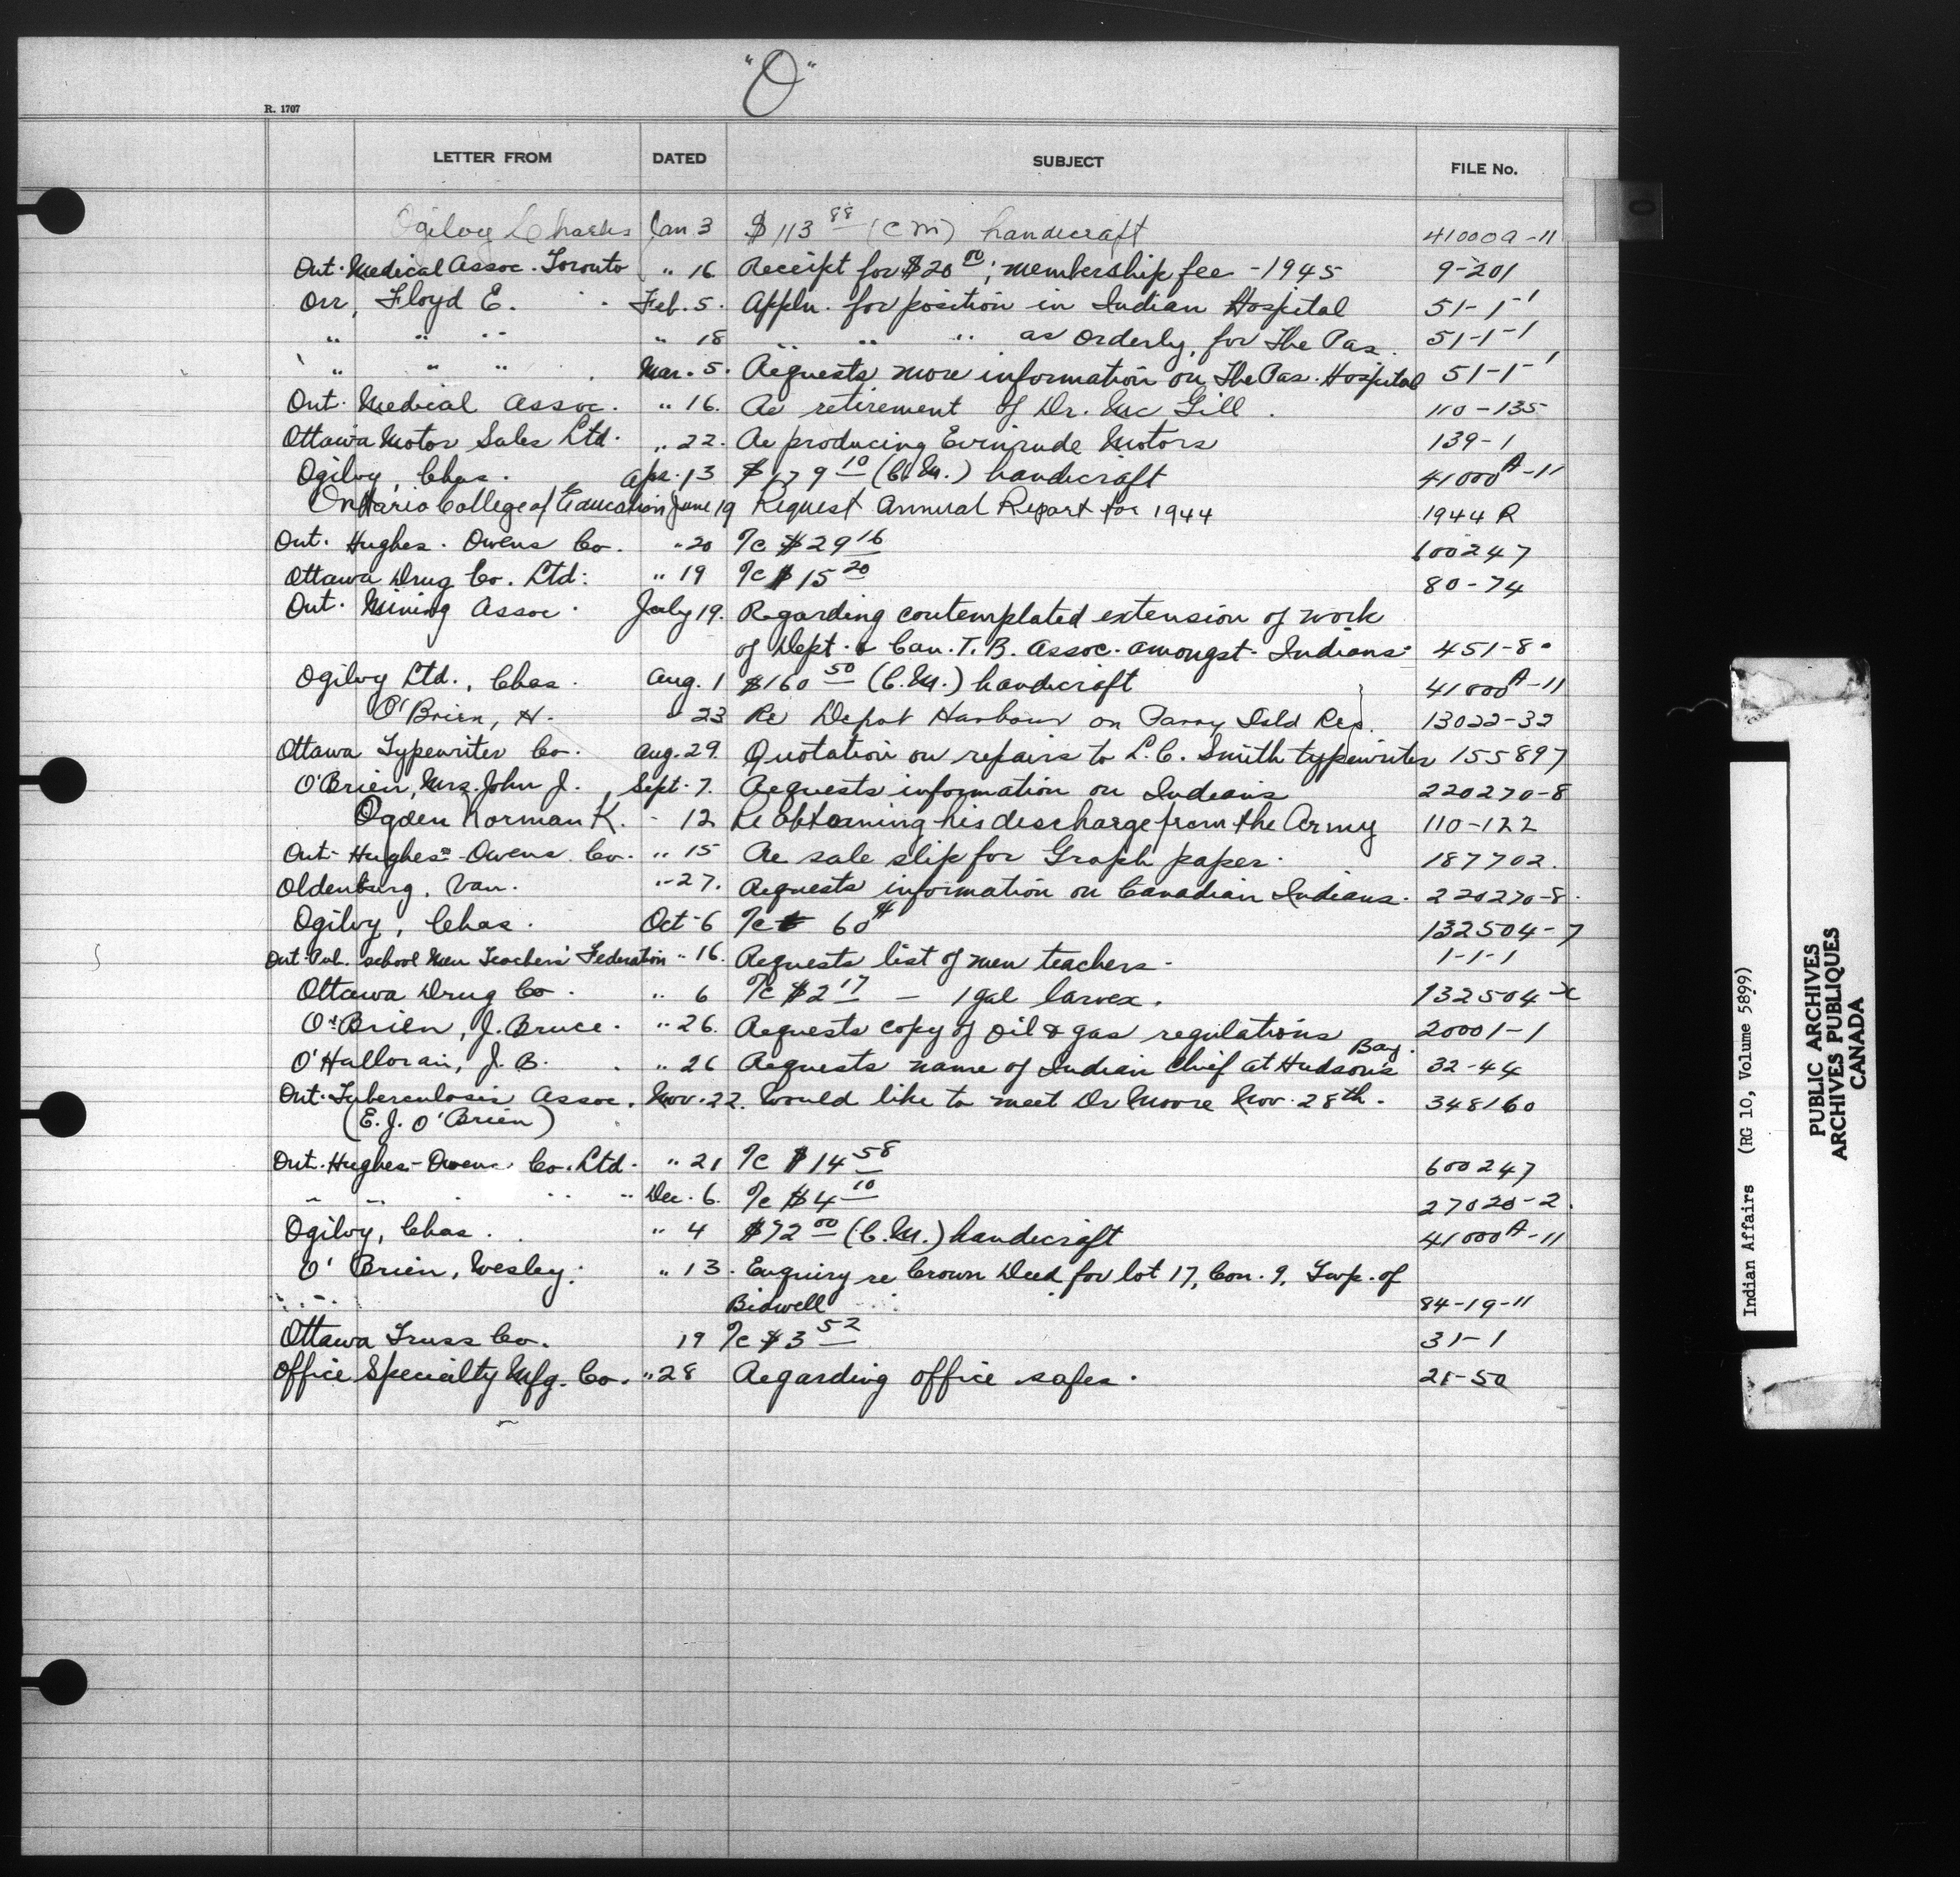 "O"
R. 1707
LETTER FROM DATED SUBJECT FILE No.
Ogilvy Charles Jan 3 $113 88 (CM) handicraft 41000A-11
Ont. Medical Assoc. Toronto " 16 Receipt for $20 00; membership fee - 1945 9-201
Orr, Floyd E. Feb. 5. Appln. for position in Indian Hospital 51-1-1
" " " " 18 " " " as orderly, for The Pas. 51-1-1
" " " Mar. 5. Requests more information on The Pas. Hospital 51-1-1
Ont. Medical Assoc. " 16. Re retirement of Dr. McGill. 110-135
Ottawa Motor Sales Ltd. " 22. Re producing Evinrude Motors 139-1
Ogilvy, Chas. Apr. 13 $179 10 (C.M.) handicraft 41000A-11
Ontario College of Education June 19 Request Annual Report for 1944 1944 R
Ont. Hughes-Owens Co. " 20 I/c $29 16 600247
Ottawa Drug Co. Ltd. " 19 I/c $15 20 80-74
Ont. Mining Assoc. July 19. Regarding contemplated extension of work
of Dept. & Can. T.B. Assoc. amongst Indians. 451-8
Ogilvy Ltd., Chas. Aug. 1 $160 50 (C.M.) handicraft 41000A-11
O'Brien, H. " 23 Re Depot Harbour on Parry Isld Res. 13022-32
Ottawa Typewriter Co. Aug. 29. Quotation on repairs to L.C. Smith typewriter 155897
O'Brien, Mrs. John J. Sept. 7. Requests information on Indians 220270-8
Ogden Norman K. - 12 Re obtaining his discharge from the Army 110-122
Ont. Hughes-Owens Co. " 15 Re sale slip for Graph paper. 187702.
Oldenburg, Van. " 27. Requests information on Canadian Indians. 220270-8.
Ogilvy, Chas. Oct-6 I/c 60¢ 132504-7
Ont. Pub. school Men Teachers' Federation " 16. Requests list of men teachers. 1-1-1
Ottawa Drug Co. " 6 I/c $2 17 - 1 gal larvex. 132504-
O'Brien, J. Bruce. " 26. Requests copy of oil & gas regulations 20001-1
O'Halloran, J.B. " 26 Requests name of Indian Chief at Hudson's Bay. 32-44
Ont. Tuberculosis Assoc. Nov. 22. Would like to meet Dr Moore Nov. 28th. 348160
(E.J. O'Brien)
Ont. Hughes-Owens Co. Ltd. " 21 I/c $14 58 600247
" " " " Dec. 6. I/c $4 10 27020-2.
Ogilvy, Chas. " 4 $72 00 (C.M.) handicraft 41000A-11
O'Brien, Wesley. " 13. Enquiry re Crown Deed for lot 17, Con. 9, Twp. of
Bidwell 84-19-11
Ottawa Truss Co. 19 I/c $3 52 31-1
Office Specialty Mfg. Co. " 28 Regarding office safes. 21-50
O
Indian Affairs (RG 10, Volume 5899)
PUBLIC ARCHIVES
ARCHIVES PUBLIQUES
CANADA